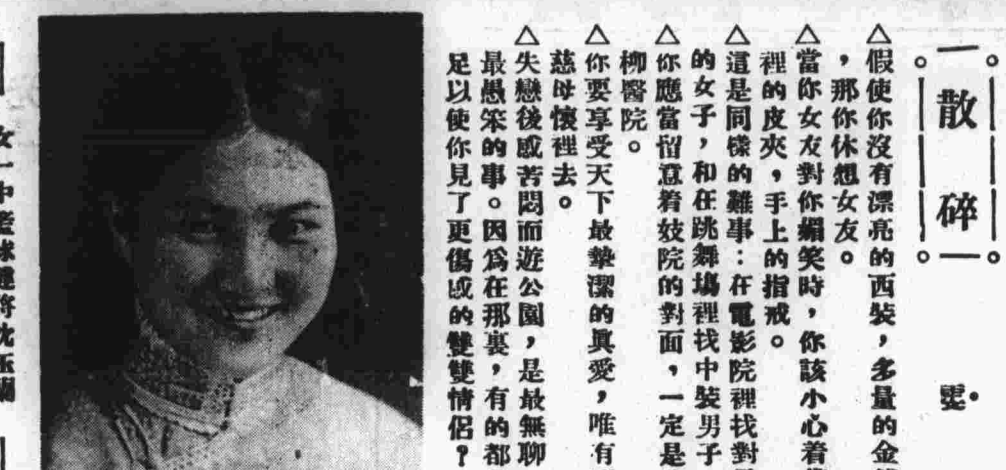 散碎
雯
△假使你沒有漂亮的西裝，多量的金
，那你休想女友。
△當你女友對你媚笑時，你該小心着
裡的皮夾，手上的指戒。
△這是同樣的難事：在電影院裡找對
的女子，和在跳舞場裡找中裝男子
△你應當留意着妓院的對面，一定是
柳醫院。
△你要享受天下最摯潔的眞愛，唯有
慈母懷裡去。
△失戀後感苦悶而遊公園，是最無聊
最愚笨的事。因爲在那裏，有的都
足以使你見了更傷感的雙雙情侶？
女一中籃球健將沈玉蘭